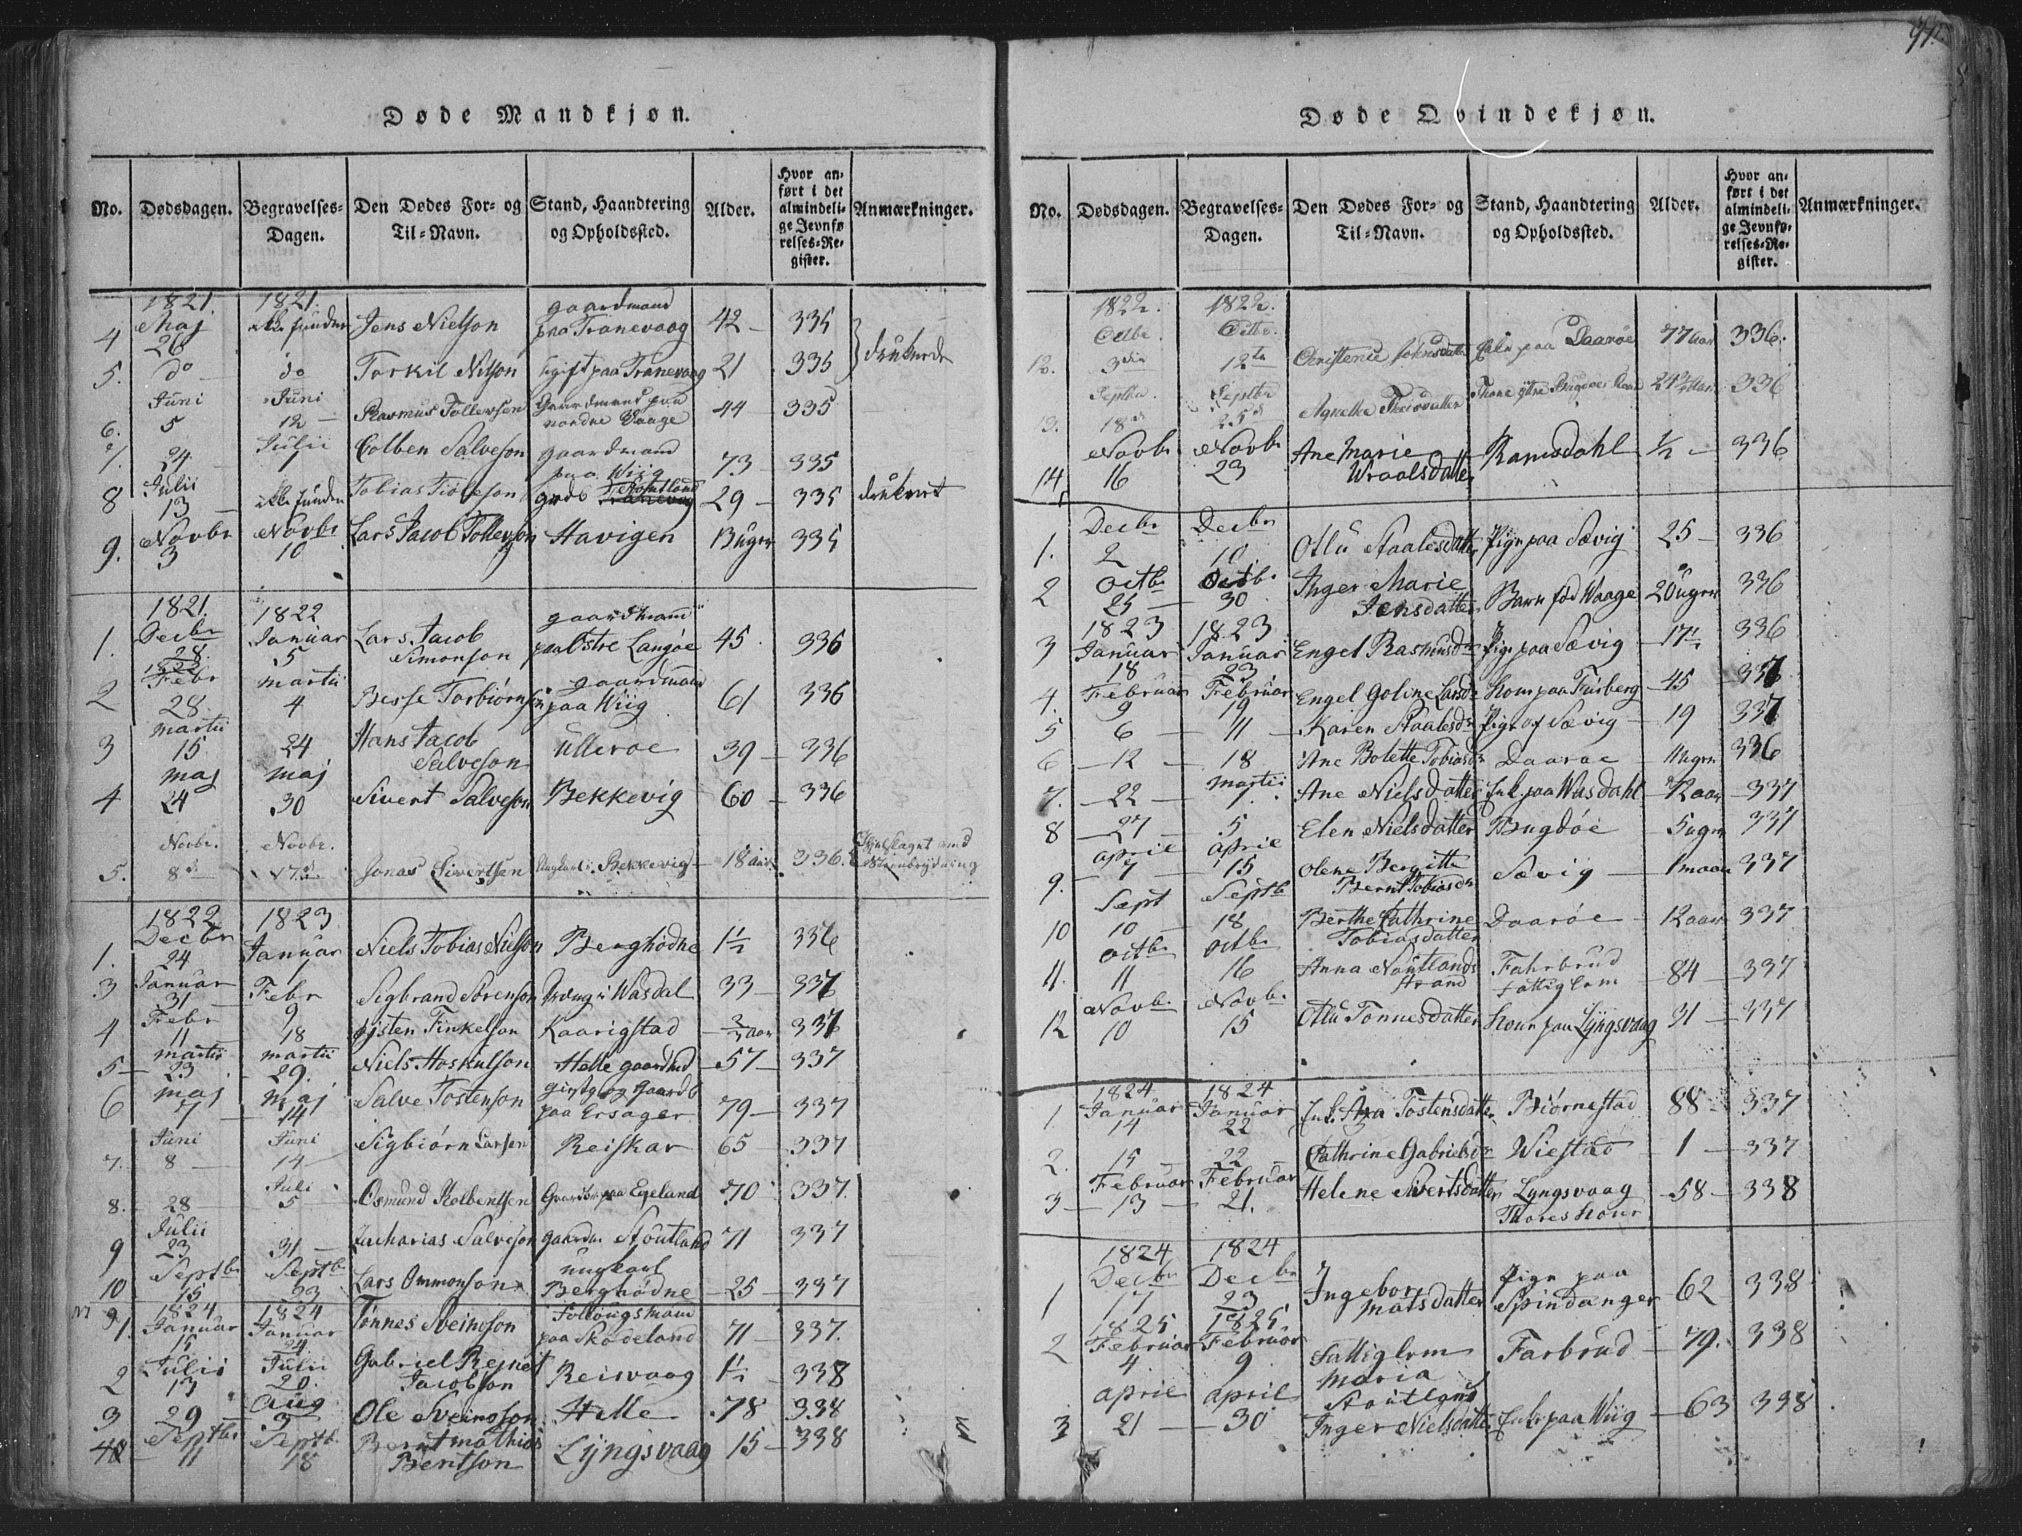 Døde Mandkjøn.
No. Dødsdagen. Begravelses-Dagen. Den Dødes For- og Til-Navn. Stand, Haandtering og Opholdssted. Alder. Hvor anført i det almindelige Jevnførelses-Register. Anmærkninger.
1821. 1821.
4 Maj 26 ikke funden Jens Nielson gaardmand paa Tranevaag 42 335
5. do do Torkil Nilson paa Tranevaag 21 335 druknede
6. Juni 5 Juni 12 Rasmus Tollevsen Gaardmand paa nordre Vaage 44 335
7. 24 Julii 1 Colben Salveson gaardmand paa Wiig 73 335
8 Julii 13 ikke funden Tobias 29 335 druknet
9. Novbr 3 Novbr 10 Lars Jacob Tollevson Havigen 13 ugr 335
1821. 1822
1. Decbr 28 Januar 5 Lars Jacob Simonson gaardmand paa Østre Langøe 45. 336
1822
2 Febr 28 martii 4 Besse Torbiørnsen gaardmand paa Wiig 61 336
3 martii 15 24 Hans Jacob Salveson Ulleroe 39 336
4 maj 24 maj 30 Sivert Salveson Bekkevig 60 336
5. Novbr. 8de Novbr. 17de Jonas Sivertsen Ungkarl i Bekkevig 18 aar 336.
1822 1823
1. Decbr 24 Januar 1 Niels Tobias Nielson Berghødne 1½ 336
3 Januar 31 Febr 9 Sigbrand Sørenson Dreng i Wasdal 33 337
4 Febr 11 18 Ojsten Finkelson Kaarigstad ¾ aar 337
5 martii 23 martii 29. Niels Hoskulson Helle 57 337
6 maj 7 maj 14 Salve Tostenson paa Ersager 79 337
7. Juni 8 Juni 14 Sigbiørn Larsen Reiskar 65 337
8. 28 Juli 5 Osmund Kolbentsen paa Egeland 70 337.
9 Julii 23 31 Zacharias Salveson Støutland 71 337
10 Septbr 15 Septbr 23 Lars Ommonson ungkarl Berghødne 25 337
1824 1824
1. Januar 15 Januar 24 Tønnes Sveinoson Follougsmand paa Skodeland 71 337.
2 Julii 13 Julii 20. Gabriel Reinert Jacobson Reisvaag 1½ 338
3 29 Aug 3 Ole Sveinoson Helle 78 338
4 Septbr 11 Septb. 18 Bernt mathias Bentson Lyngsvaag 15 338
Døde Qvindekjøn.
No. Dødsdagen. Begravelses-Dagen. Den Dødes For- og Til-Navn. Stand, Haandtering og Opholdssted. Alder. Hvor anført i det almindelige Jevnførelses-Register. Anmærkninger.
1822. 1822.
12. 3die 12te Christense Johnsdatter Enke paa Daarøe 77 aar 336.
3. Septbr 18de Septbr 25de Agnethe 336
14 Novbr 16 Novbr 23 Ane Marie Wraalsdatter Ramsdahl ½ 336
1. Decbr 2 Decbr 10 Ollu Staalesdatter Pige paa Sævig 25 336
2 Octbr 25 Octbr 30 Inger Marie Jensdatter Barn fød Waage 20 ugr 336
1823 1823
3 Januar 18 Januar 23 Engel Rasmusdr Pige paa Sævig 17½ 336
4. Februar 9 Februar 19 Engel Goline Larsdr Konr paa Fusberg 45 337
5 6 11 Karen Staalesdr Pige af Sævig 19 337
6 12 18 Ane Bolette Tobiasdr Daaroe 11 ugr 336
7. 22 martii 1 Ane Nielsdatter Enk. paa Wasdahl 337
8 27 5 Elen Nielsdatter Bragdøe 5 ugr 337
9. april 7 april 15 Olene Bergitte Bernt Tobiasdr Sævig 1 maan 337
10 Sept 10 Septb 18 Berthe Cathrine Tobiasdatter Daarøe 337
11. octbr 11 octbr 16 Anna Noutlands Strand Fahrbrud fattiglem 84 337
12 Novbr 10 Novbr 15 Ollu Tønnesdatter Konr paa Lyngsvaag 31 337
1824 1824
1. Januar 14 Januar 22 Enk. Asa Tostensdatter Biørnestad 88 337
2. 15 22 Cathrine Gabrielsdr Wiestad 1 337
3 Februar 13 Februar 21. Helene Sivertsdatter Lyngsvaag Thores Konr 58 338
1824 1824
1 Decbr 17 Decbr 23 Ingebor matsdatter Pige paa Spindanger 62 338
1825 1825
2 Februar 4 Februar 9 Fattiglem Maria Stoutland Farbrud 79. 338
3 april 21 april 30 Inger Nielsdatter Enke paa Wiig 63 338